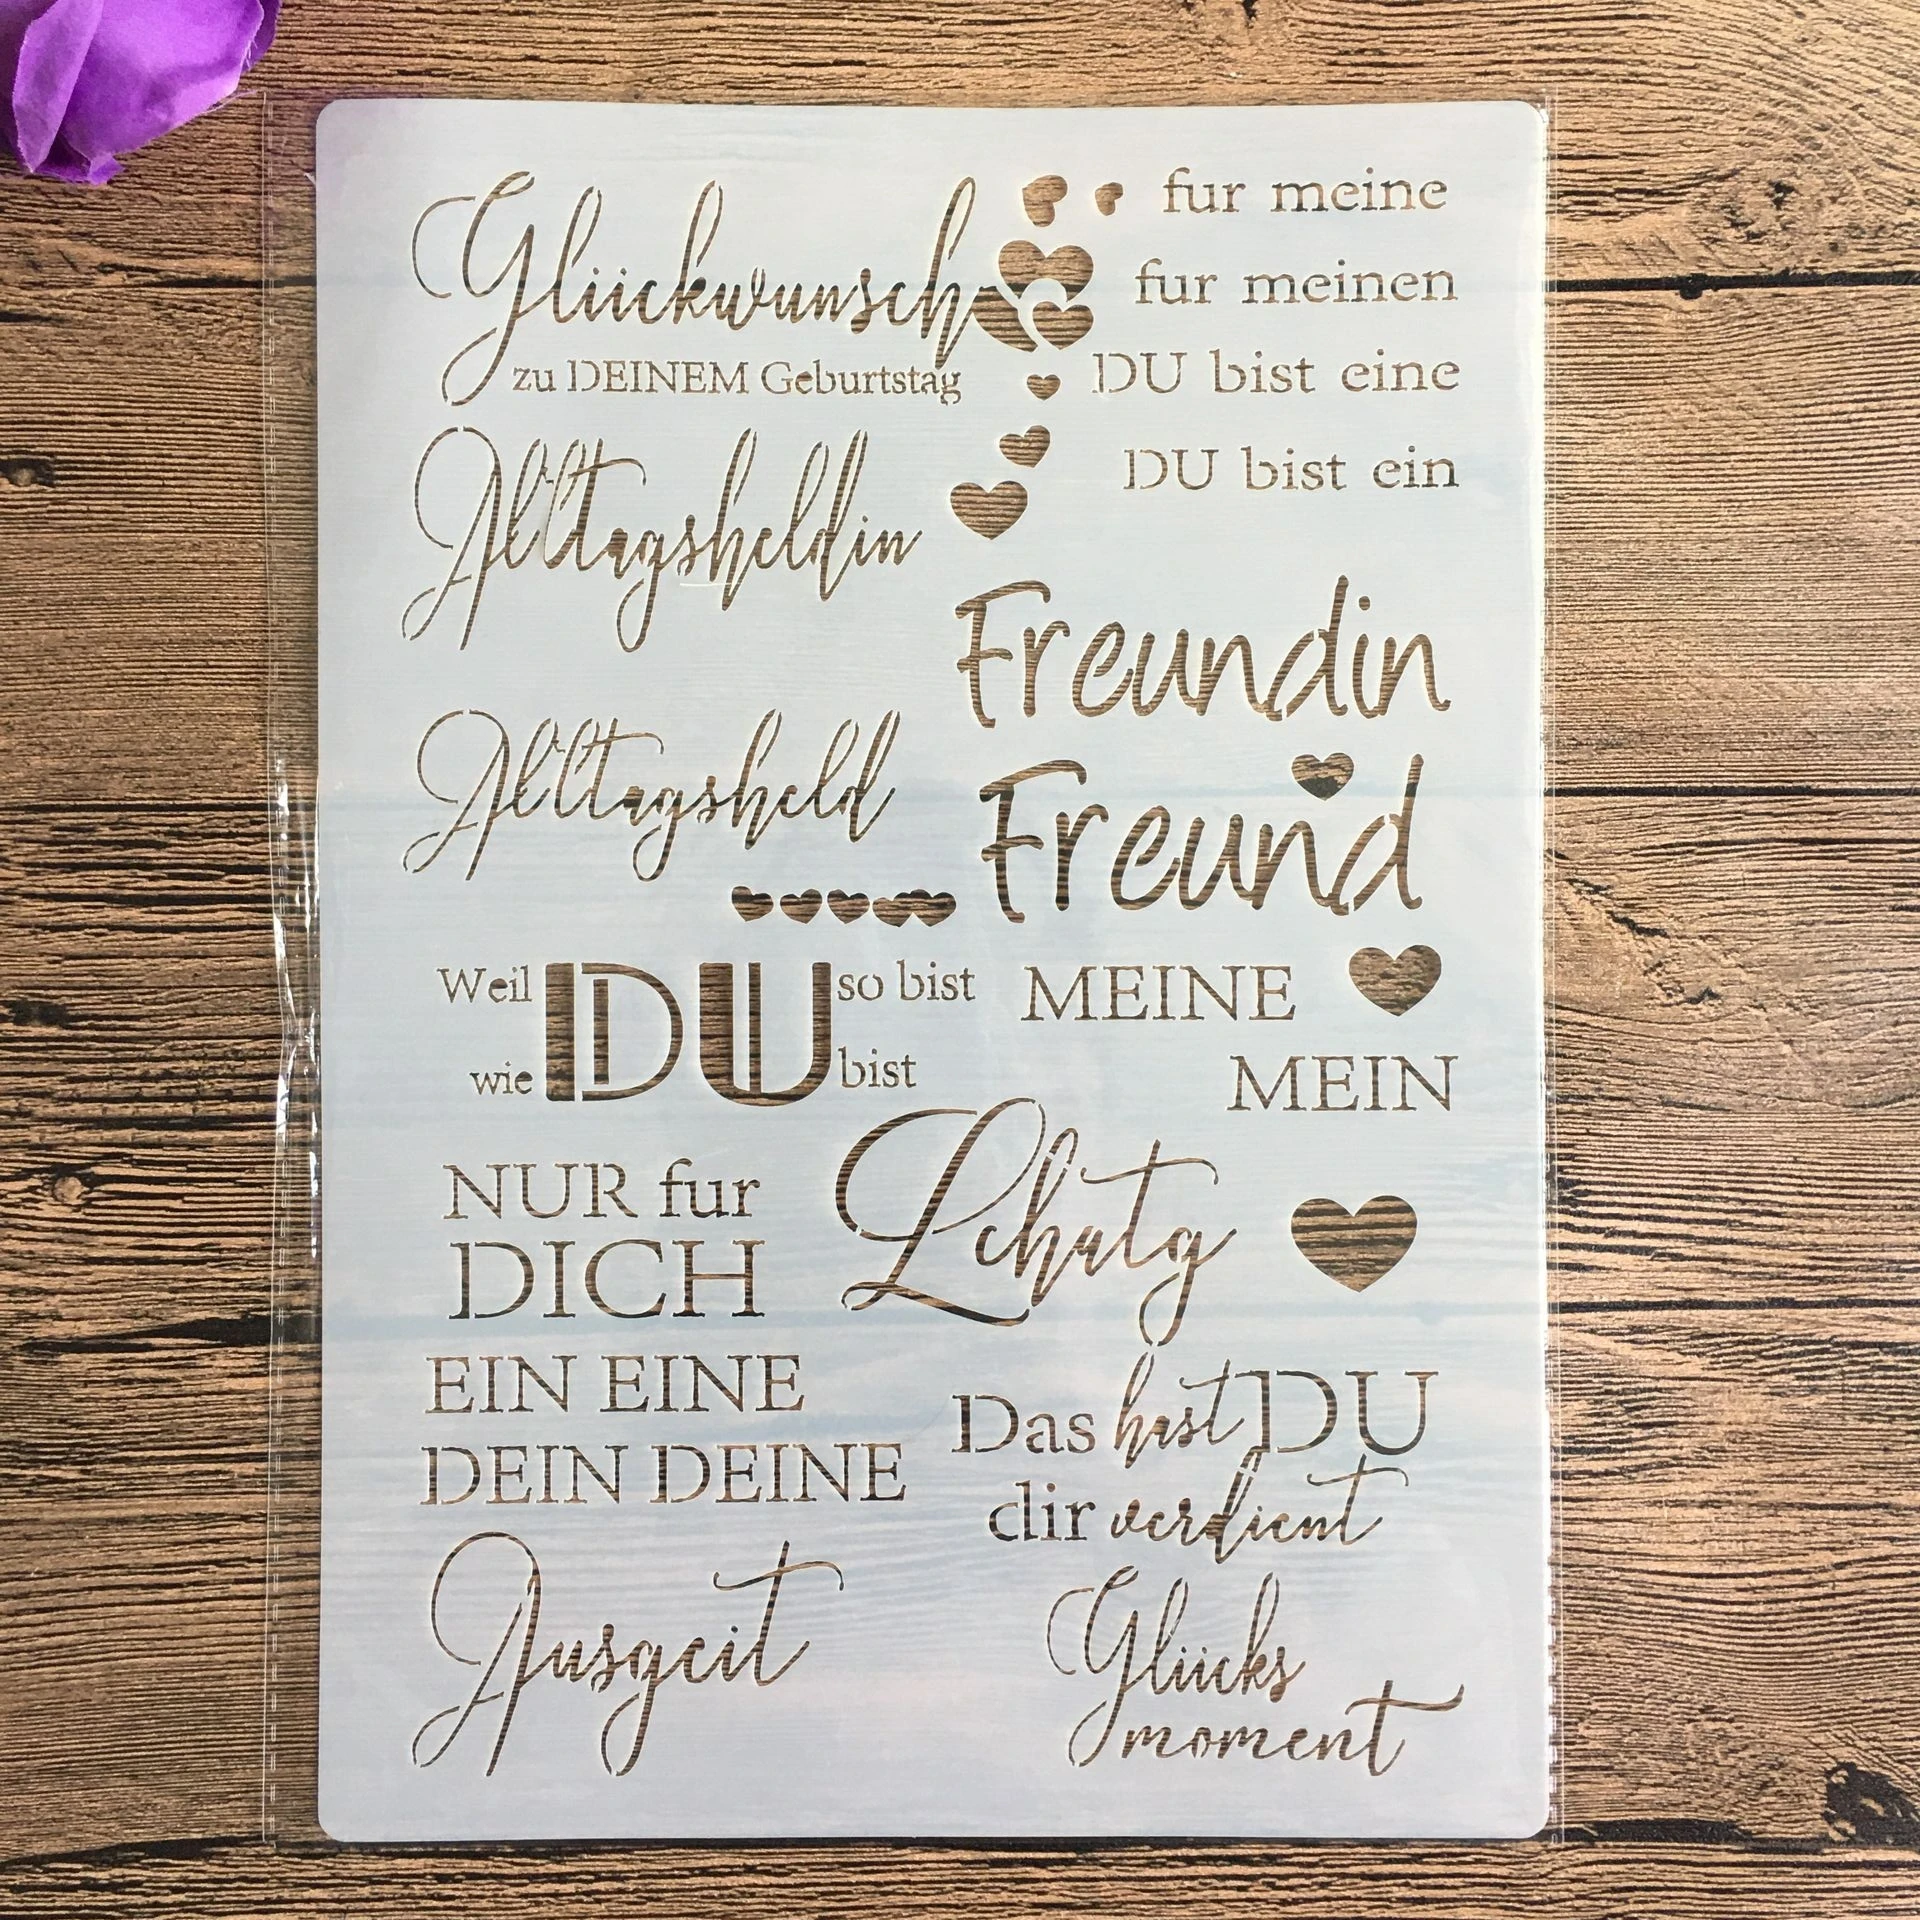 Glückwunsch
zu DEINEM Geburtstag
fur meine
fur meinen
DU bist eine
DU bist ein
Alltagsheldin
Freundin
Alltagsheld
Freund
Weil DU so bist
wie DU bist
MEINE
MEIN
NUR fur
DICH
Lchutg
EIN EINE
DEIN DEINE
Das hast DU
dir verdient
Ausgeit
Glücks
moment